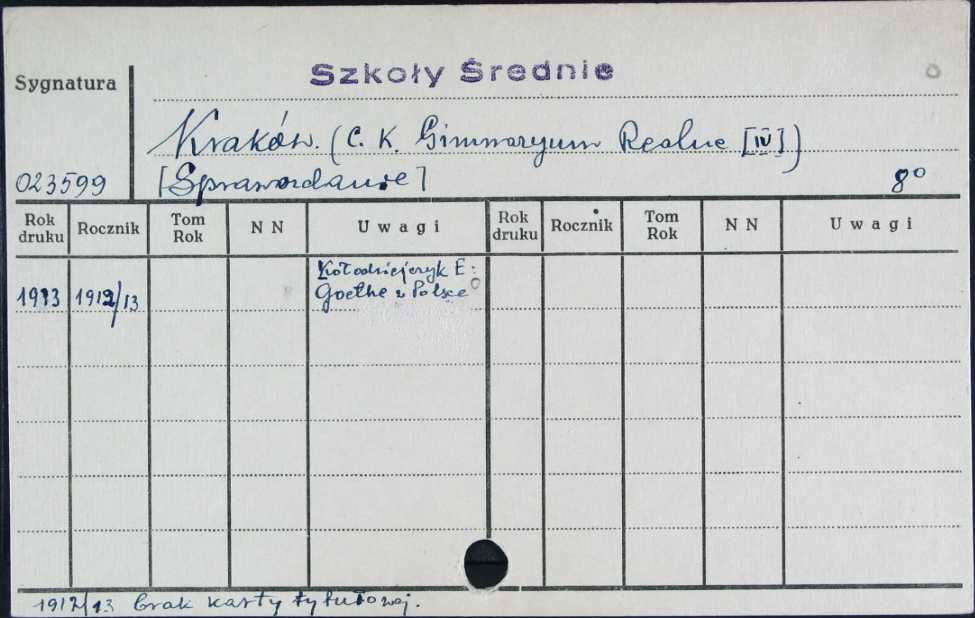 Szkoły Średnie
Sygnatura
Kraków. (C. K. Gimnazyum Realne [IV])
023599 [Sprawozdanie] 8°
Rok druku Rocznik Tom Rok N N Uwagi Rok druku Rocznik Tom Rok N N Uwagi
Kołodziejczyk E:
1913 1912/13 Goethe w Polsce
1912/13 brak karty tytułowej.